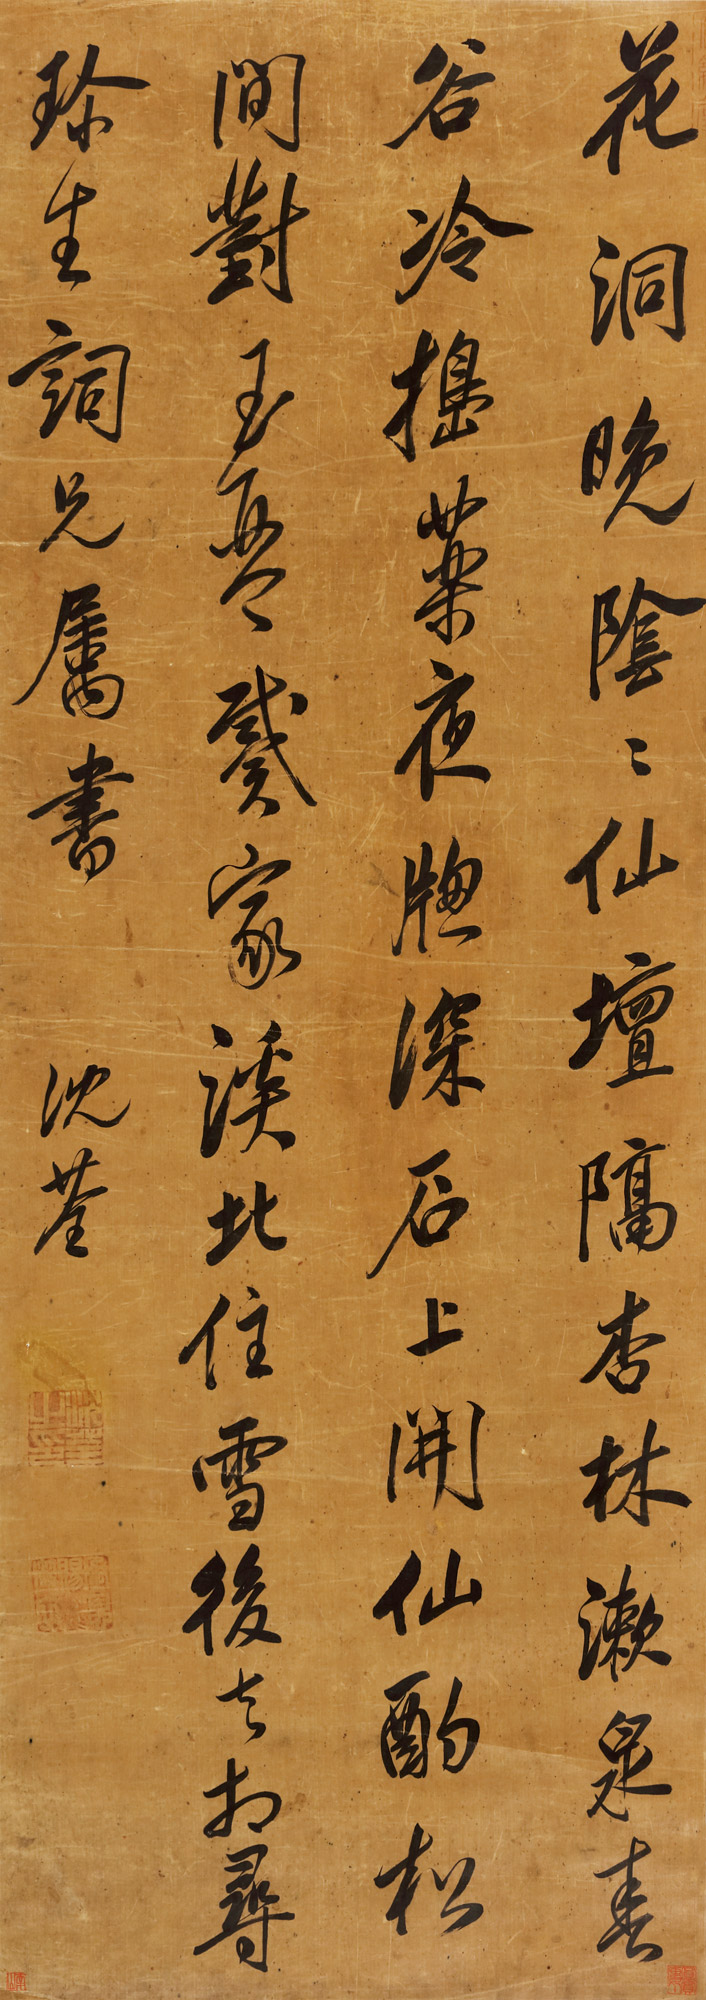 花洞晚陰〻仙壇隔杏林漱泉春
谷冷擣藥夜牕深石上開仙酌松
間對玉琴戴家溪北住雪後去相尋
珍生詞兄屬書
沈荃